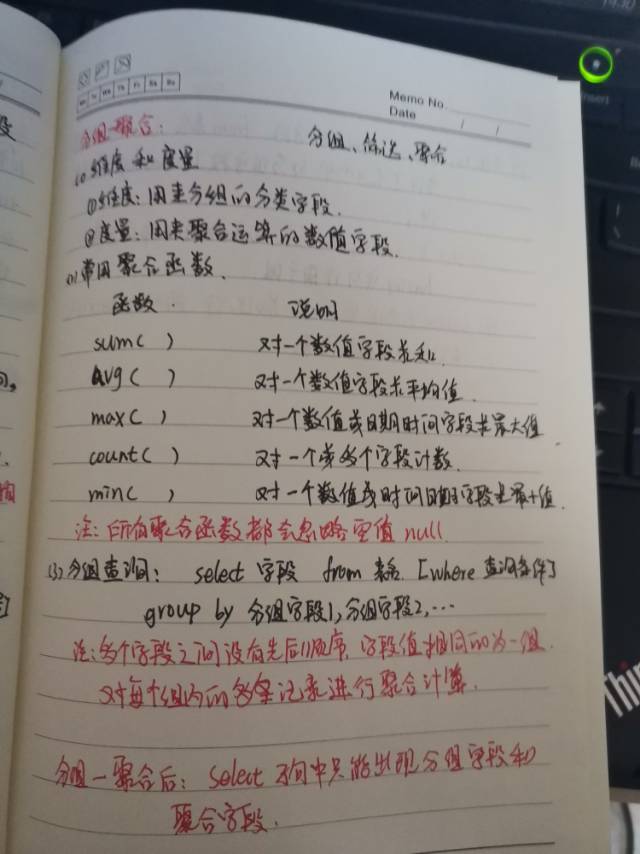 Memo No.
Date / /
Mo Tu We Th Fr Sa Su
分组-聚合：
分组、筛选、聚合
(1)维度和度量
①维度：用来分组的分类字段.
②度量：用来聚合运算的数值字段.
(2)常用聚合函数.
函数. 说明
sum( ) 对一个数值字段求和.
avg( ) 对一个数值字段求平均值.
max( ) 对一个数值或日期时间字段求最大值
count( ) 对一个或多个字段计数.
min( ) 对一个数值或时间日期字段求最小值.
注：所有聚合函数都会忽略空值 null.
(3)分组查询： select 字段 from 表名 [where 查询条件]
group by 分组字段1,分组字段2,…
注：多个字段之间没有先后顺序,字段值相同的为一组.
对每个组内的多条记录进行聚合计算.
分组-聚合后：select 子句中只能出现分组字段和
聚合字段.
Insert
Thin